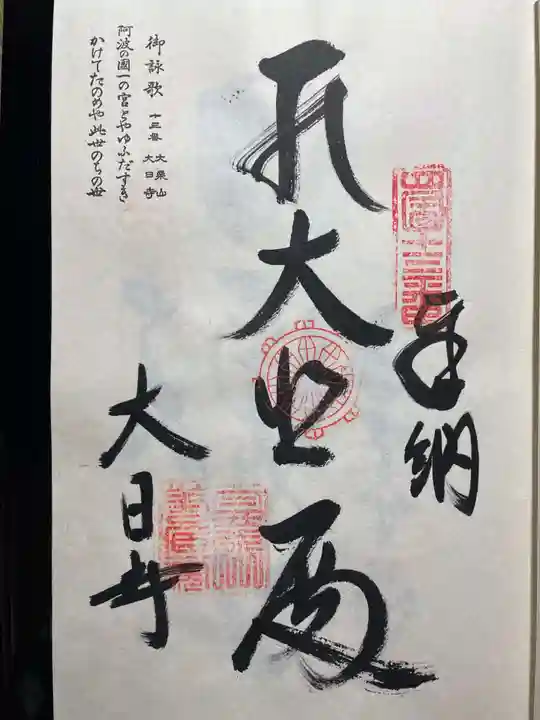 奉納
四国十三番
大悲
大日寺
御詠歌 十三番 大栗山 大日寺
阿波の國一の宮とやゆふだすき
かけてたのめや此世のちの世